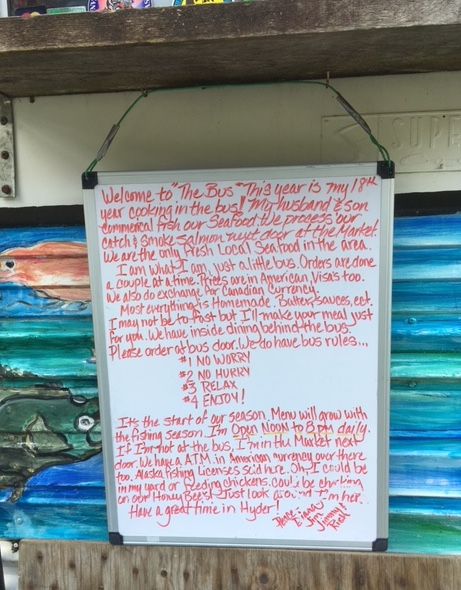 SUPP
Welcome to "The Bus" This year is my 18th
year cooking in the bus! My husband & son
commerical fish our Seafood. We process our
catch & smoke salmon next door at the Market.
We are the only Fresh Local Seafood in the area.
I am what I am, just a little bus. Orders are done
a couple at a time. Prices are in American Visa's too.
We also do exchange for Canadian Currency.
Most everything is Homemade. Batter, sauces, ect.
I may not be to fast but I'll make your meal just
for you. We have inside dining behind the bus.
Please order at bus door. We do have bus rules...
#1 NO WORRY
#2 NO HURRY
#3 RELAX
#4 ENJOY!
It's the start of our season. Menu will grow with
the fishing season. I'm Open NOON to 8pm daily.
If I'm not at the bus, I'm in the Market next
door. We have a ATM in American currency over there
too. Alaska fishing Licenses sold here. Oh, I could be
in my yard or feeding chickens, could be checking
on our Honey Bee's! Just look around I'm here.
Have a great time in Hyder!
Jim
Jimmy!